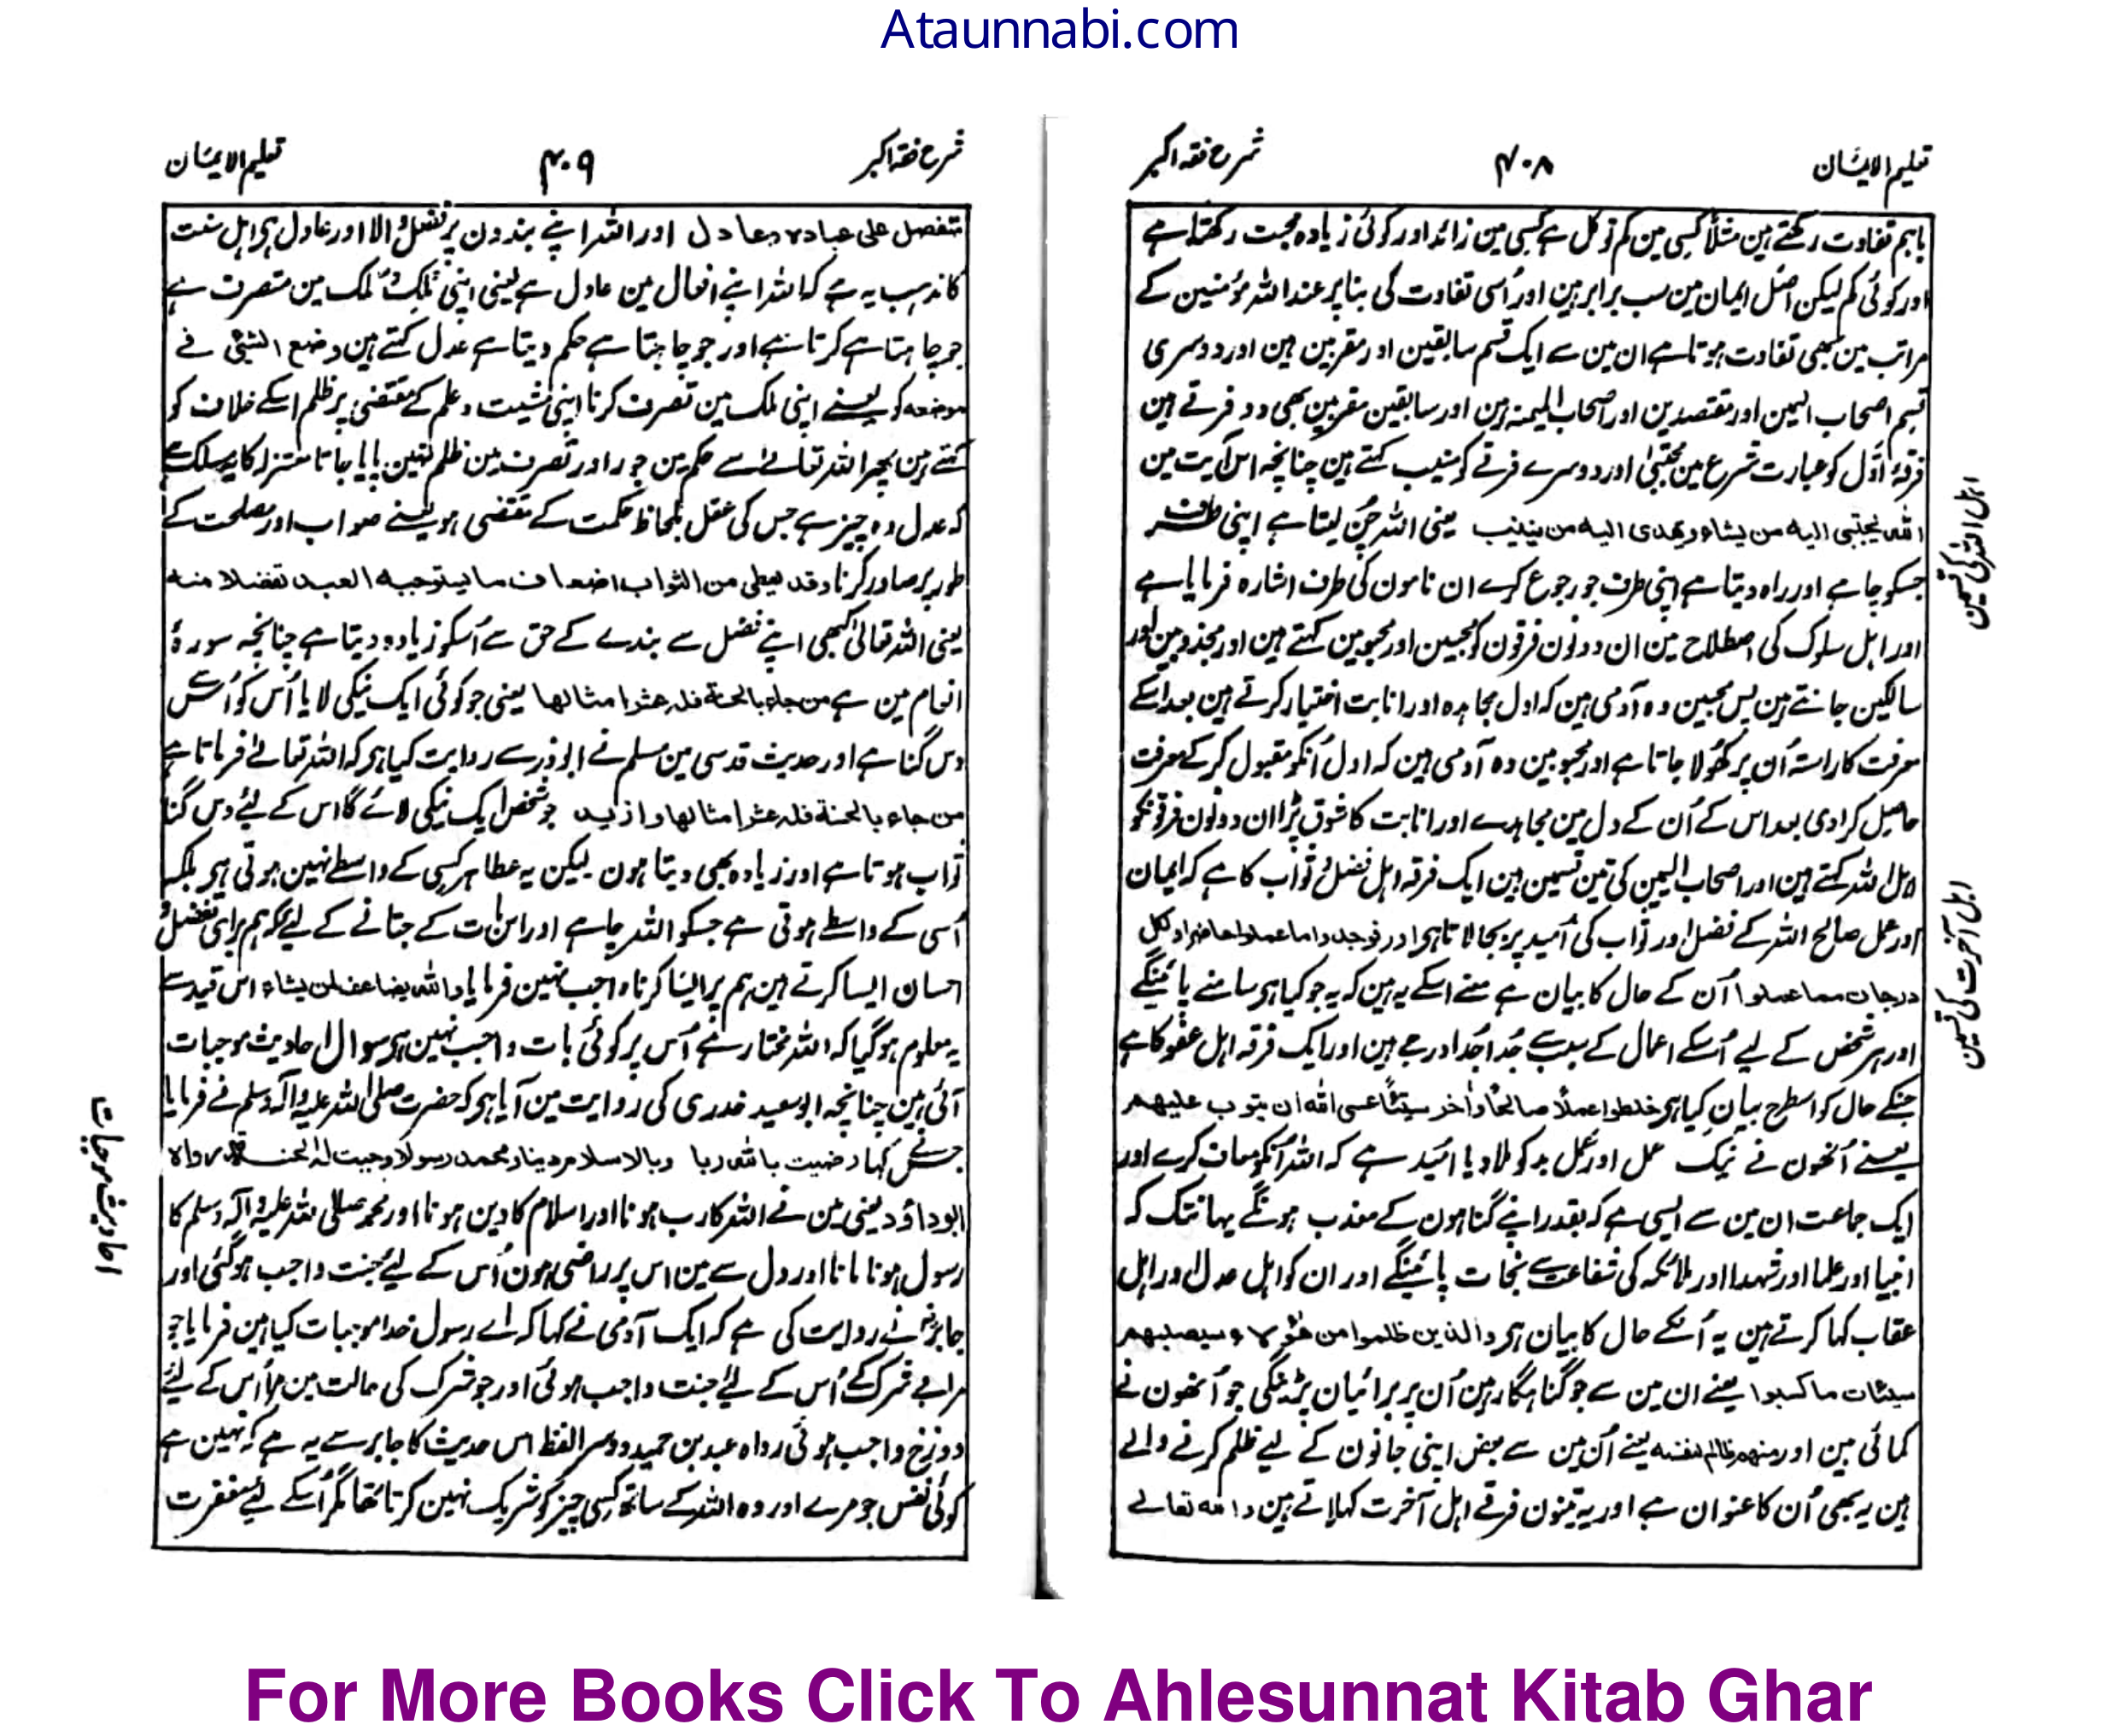 Ataunnabi.com
تعلیم الایمان
۴۰۸
شرح فقہ اکبر
باہم تفاوت رکھتے ہین مثلاً کسی مین کم توکل ہے کسی مین زائد اور کوئی زیادہ محبت رکھتا ہے
اور کوئی کم لیکن اصل ایمان مین سب برابر ہین اور اُسی تفاوت کی بنا پر عند اللہ مؤمنین کے
مراتب مین بھی تفاوت ہوتا ہے ان مین سے ایک قسم سابقین اور مقربین ہین اور دوسری
قسم اصحاب الیمن اور مقتصدین اور اصحاب المیمنہ ہین اور سابقین مقربین بھی دو فرقے ہین
فرقۂ اوّل کو عبارت شرع مین مجتبیٰ اور دوسرے فرقے کو منیب کہتے ہین چنانچہ اس آیت مین
اللہ یجتبی الیہ من یشاء ویھدی الیہ من ینیب یعنی اللہ چُن لیتا ہے اپنی طرف
جسکو چاہے اور راہ دیتا ہے اپنی طرف جو رجوع کرے ان نامون کی طرف اشارہ فرمایا ہے
اور اہل سلوک کی اصطلاح مین ان دونون فرقون کو محبین اور محبوبین کہتے ہین اور مجذوبین اور
سالکین جانتے ہین پس محبین وہ آدمی ہین کہ اول مجاہدہ اور انابت اختیار کرتے ہین بعد اسکے
معرفت کا راستہ اُن پر کھولا جاتا ہے اور محبوبین وہ آدمی ہین کہ اول اُنکو مقبول کر کے معرفت
حاصل کرا دی بعد اس کے اُن کے دل مین مجاہدے اور انابت کا شوق پڑا ان دونون فرقونکو
اہل اللہ کہتے ہین اور اصحاب الیمین کی تین قسمین ہین ایک فرقہ اہل فضل و ثواب کا ہے کہ ایمان
اور عمل صالح اللہ کے فضل اور ثواب کی اُمید پر بجا لاتا ہی اور فوجدوا ما عملوا حاضرا ولکل
درجات مما عملوا اُن کے حال کا بیان ہے معنے اسکے یہ ہین کہ یہ جو کیا ہی سامنے پائینگے
اور ہر شخص کے لیے اُسکے اعمال کے سبب سے جُدا جُدا درجے ہین اور ایک فرقہ اہل عفو کا ہے
جنکے حال کو اسطرح بیان کیا ہی خلطوا عملًا صالحًا وآخر سیئًا عسی اللہ ان یتوب علیھم
یعنے اُنھون نے نیک عمل اور عمل بد کو ملا دیا امُید ہے کہ اللہ اُنکو معاف کرے اور
ایک جماعت ان مین سے ایسی ہے کہ بقدر اپنے گناہون کے معذب ہونگے یہانتک کہ
انبیا اور علما اور شہدا اور ملائکہ کی شفاعت سے نجات پائینگے اور ان کو اہل عدل اور اہل
عقاب کہا کرتے ہین یہ اُنکے حال کا بیان ہی والذین ظلموا من ھٰؤلاء سیصیبھم
سیئات ما کسبوا یعنے ان مین سے جو گناہگار ہین اُن پر برائیان پڑینگی جو اُنھون نے
کمائی ہین اور منھم ظالم لنفسہ یعنے اُن مین سے بعض اپنی جانون کے لیے ظلم کرنے والے
ہین یہ بھی اُن کا عنوان ہے اور یہ تینون فرقے اہل آخرت کہلاتے ہین واللہ تعالے
اہل اللہ کی قسمین
اہل آخرت کی قسمین
شرح فقہ اکبر
۴۰۹
تعلیم الایمان
متفضل علی عبادہ وعادل اور اللہ اپنے بندون پر فضل والا اور عادل ہی اہل سنت
کا مذہب یہ ہے کہ اللہ اپنے افعال مین عادل ہے یعنی اپنی مُلک و مِلک مین متصرف ہے
جو چاہتا ہے کرتا ہے اور جو چاہتا ہے حکم دیتا ہے عدل کہتے ہین وضع الشئی نے
موضعہ کو یعنے اپنی ملک مین تصرف کرنا اپنی مشیت و علم کے مقتضی پر ظلم اسکے خلاف کو
کہتے ہین پھر اللہ تعالےٰ سے حکم مین جور اور تصرف مین ظلم نہین پایا جاتا معتزلہ کا یہ مسلک ہے
کہ عدل وہ چیز ہے جس کی عقل بلحاظ حکمت کے مقتضی ہو یعنے صواب اور مصلحت کے
طور پر صادر کرنا وقد یعطی من الثواب اضعاف ما یستوجبہ العبد تفضلا منہ
یعنی اللہ تعالیٰ کبھی اپنے فضل سے بندے کے حق سے اُسکو زیادہ دیتا ہے چنانچہ سورۂ
انعام مین ہے من جاء بالحسنۃ فلہ عشر امثالھا یعنی جو کوئی ایک نیکی لایا اُس کو اُس سے
دس گنا ہے اور حدیث قدسی مین مسلم نے ابوذر سے روایت کیا ہی کہ اللہ تعالےٰ فرماتا ہے
من جاء بالحسنۃ فلہ عشر امثالھا وازید جو شخص ایک نیکی لائے گا اس کے لیے دس گنا
ثواب ہوتا ہے اور زیادہ بھی دیتا ہون لیکن یہ عطا ہر کسی کے واسطے نہین ہوتی ہی بلکہ
اُسی کے واسطے ہوتی ہے جسکو اللہ چاہے اور اس بات کے جتانے کے لیے کہ ہم براہ تفضل و
احسان ایسا کرتے ہین ہم پر ایسا کرنا واجب نہین فرمایا واللہ یضاعف لمن یشاء اس قید سے
یہ معلوم ہو گیا کہ اللہ مختار ہے اُس پر کوئی بات واجب نہین ہی سوال احادیث موجبات
آئی ہین چنانچہ ابوسعید خدری کی روایت مین آیا ہی کہ حضرت صلی اللہ علیہ وآلہ وسلم نے فرمایا
جسنے کہا رضیت باللہ ربا وبالاسلام دینا وبمحمد رسولا وجبت لہ الجنۃ رواہ
ابوداؤد یعنی مین نے اللہ کا رب ہونا اور اسلام کا دین ہونا اور محمد صلی اللہ علیہ وآلہ وسلم کا
رسول ہونا مانا اور دل سے مین اس پر راضی ہون اُس کے لیے جنت واجب ہو گئی اور
جابرؓ نے روایت کی ہے کہ ایک آدمی نے کہا کہ اے رسول خدا موجبات کیا ہین فرمایا جو
مرا بے شرک کے اُس کے لیے جنت واجب ہوئی اور جو شرک کی حالت مین مرا اُس کے لیے
دوزخ واجب ہوئی رواہ عبد بن حمید دوسرا لفظ اس حدیث کا جابر سے یہ ہے کہ نہین ہے
کوئی نفس جو مرے اور وہ اللہ کے ساتھ کسی چیز کو شریک نہین کرتا تھا مگر اُسکے لیے مغفرت
احادیث موجبات
For More Books Click To Ahlesunnat Kitab Ghar